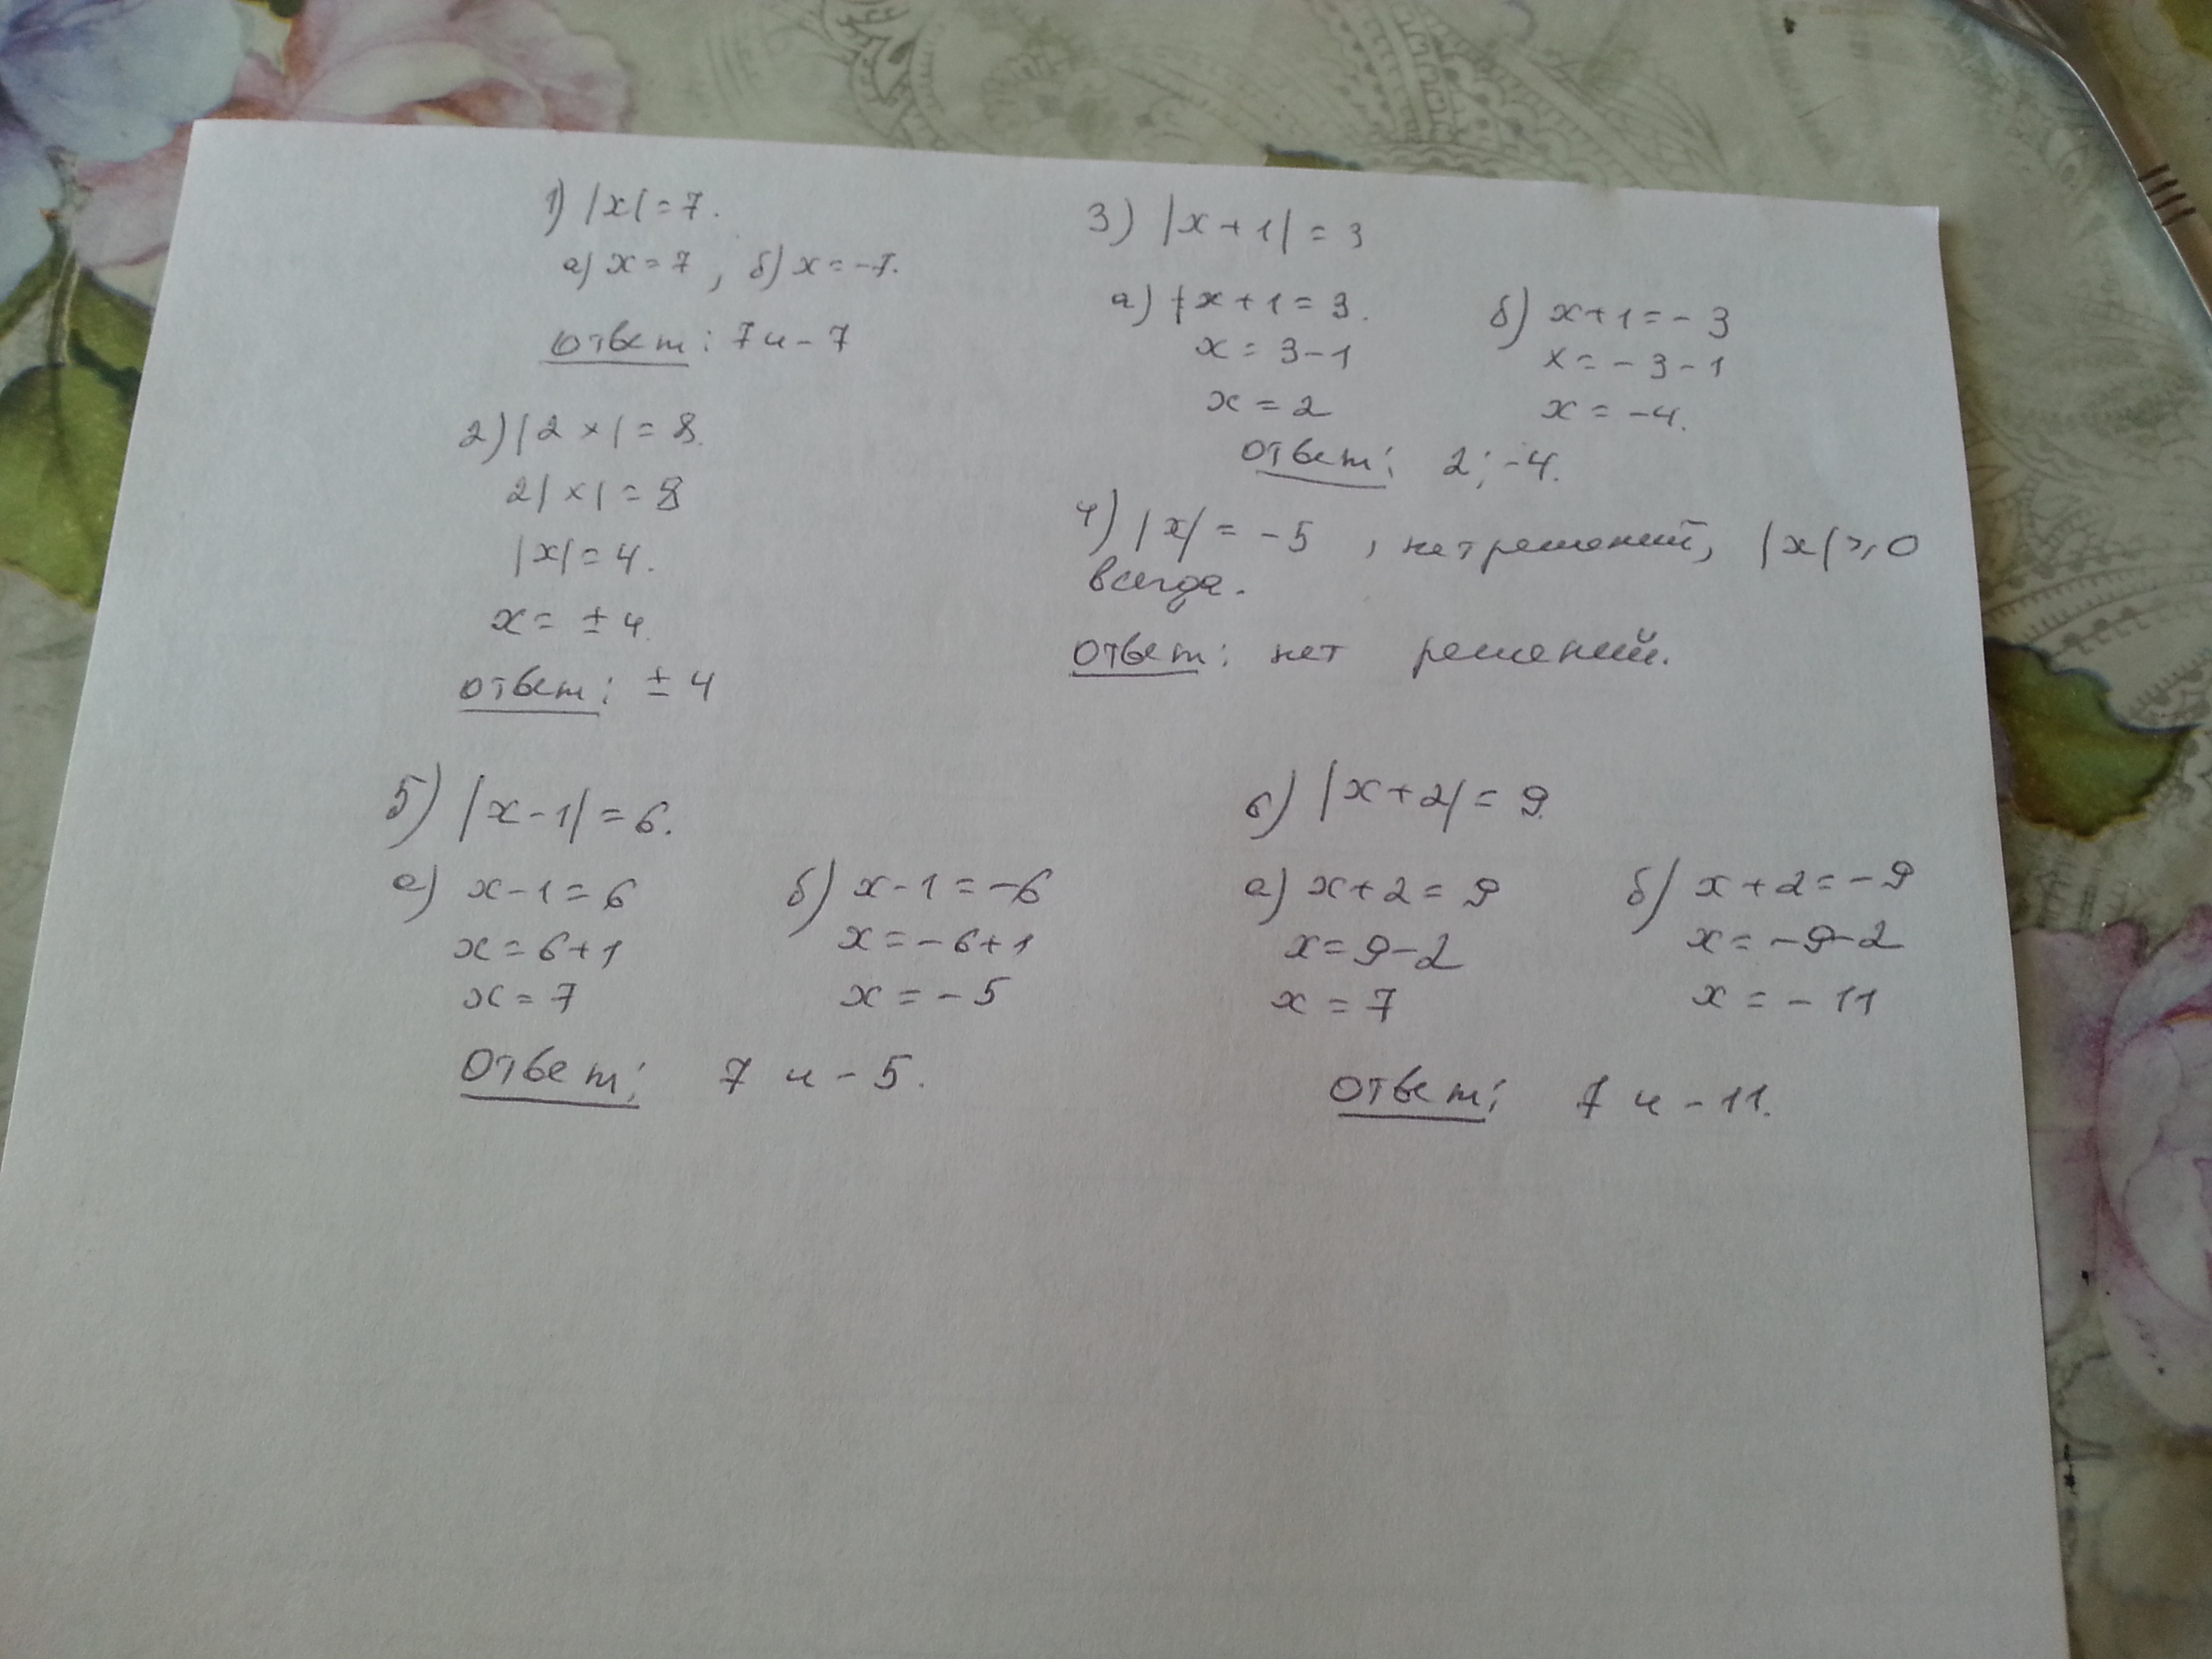 1) |x|=7.
а) x=7, б) x=-7.
Ответ: 7 и -7
2) |2x|=8.
2|x|=8
|x|=4.
x= ±4.
Ответ: ±4
3) |x+1|=3
а) x+1=3.
x=3-1
x=2
б) x+1=-3
x=-3-1
x=-4.
Ответ: 2; -4.
4) |x|=-5, нет решений, |x|⩾0
всегда.
Ответ: нет решений.
5) |x-1|=6.
а) x-1=6
x=6+1
x=7
б) x-1=-6
x=-6+1
x=-5
Ответ: 7 и -5.
6) |x+2|=9.
а) x+2=9
x=9-2
x=7
б) x+2=-9
x=-9-2
x=-11
Ответ: 7 и -11.